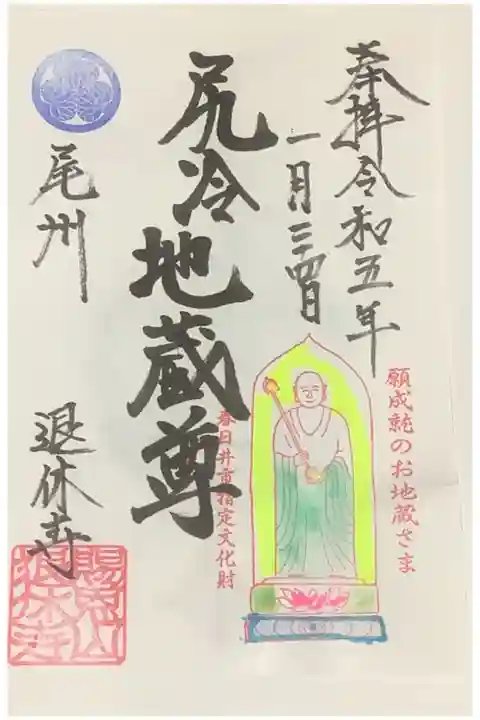 奉拝 令和五年
一月三四日
願成就のお地蔵さま
尻冷地蔵尊
春日井市指定文化財
尾州
退休寺